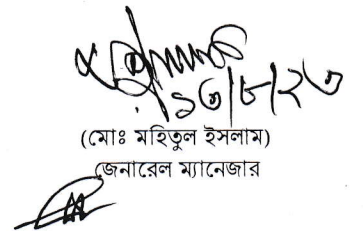 ১৩/৮/২৩
(মোঃ মহিতুল ইসলাম)
জেনারেল ম্যানেজার